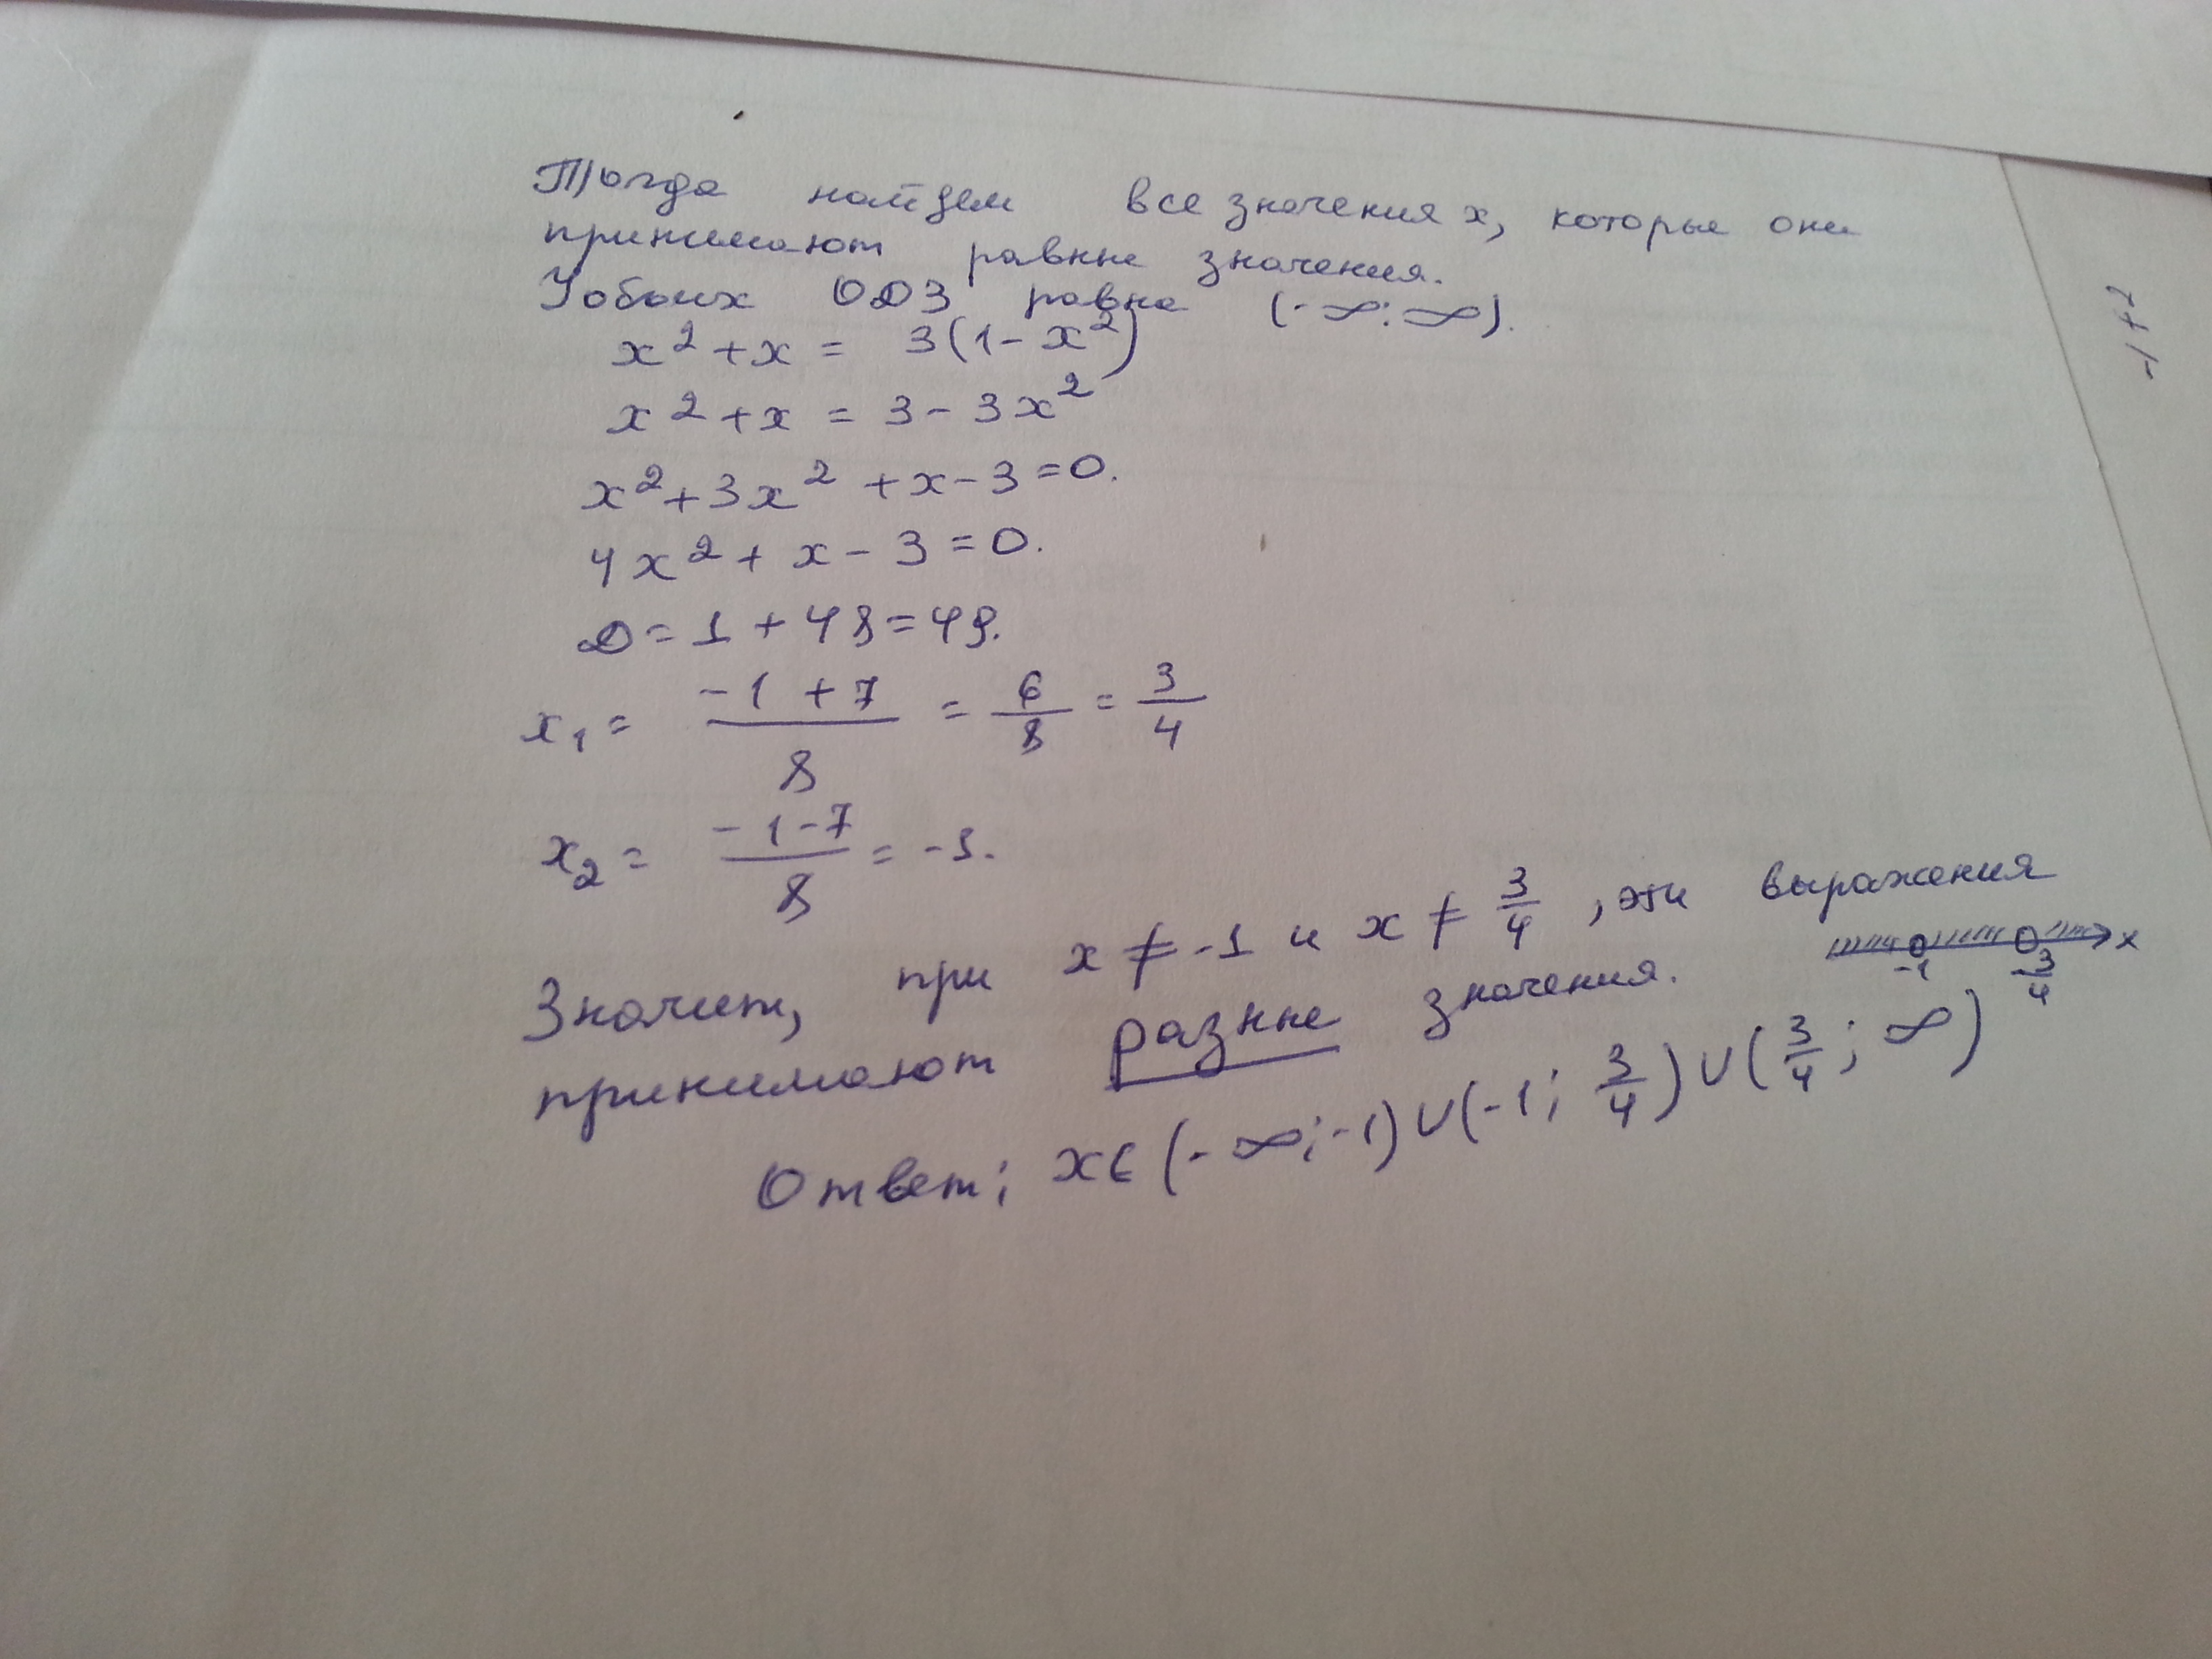 Тогда найдем все значения x, которые они
принимают равные значения.
У обоих ОДЗ равна (-∞; ∞).
x² + x = 3(1 - x²)
x² + x = 3 - 3x²
x² + 3x² + x - 3 = 0.
4x² + x - 3 = 0.
D = 1 + 48 = 49.
x₁ = (-1 + 7)/8 = 6/8 = 3/4
x₂ = (-1 - 7)/8 = -1.
Значит, при x ≠ -1 и x ≠ 3/4, эти выражения
принимают разные значения.
-1 3/4 x
Ответ: x ∈ (-∞; -1) ∪ (-1; 3/4) ∪ (3/4; ∞)